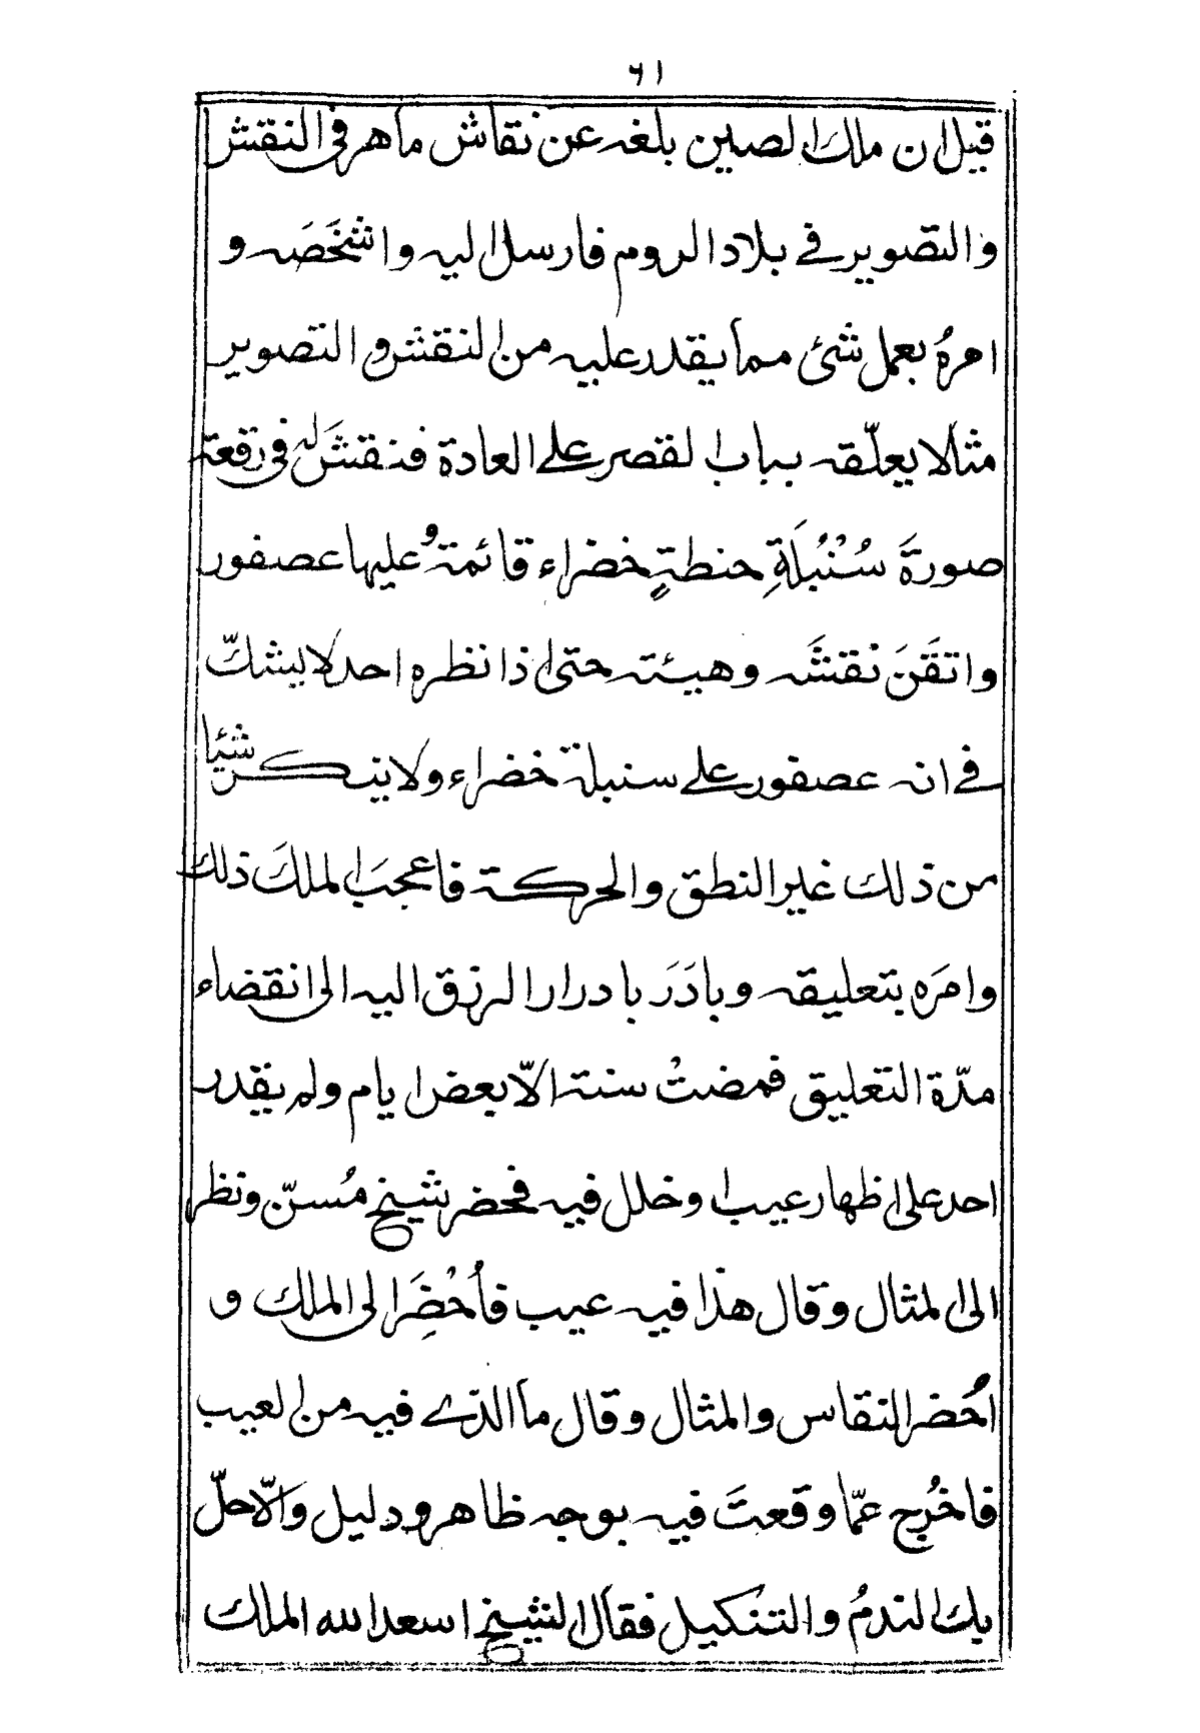 ٦١
قيل ان ملك الصين بلغه عن نقاش ماهر فى النقش
والتصوير فے بلاد الروم فارسل اليه واشخَصَه و
امرهُ بعمل شئ مما يقدر عليه من النقش والتصوير
مثالا يعلّقه بباب القصر علے العادة فنقشَ له فى رقعة
صورةَ سُنْبُلَةِ حنطةٍ خضراء قائمة وُعليها عصفور
واتقَنَ نقشَه وهيئته حتى اذا نظره احد لا يشكّ
فے انه عصفور علے سنبلة خضراء ولا ينكر شيئا
من ذلك غير النطق والحركة فاعجبَ الملكَ ذلك
وامرَه بتعليقه وبادَرَ بادرار الرزق اليه الى انقضاء
مدّة التعليق فمضتْ سنة الاّ بعض ايام ولم يقدر
احد على اظهار عيب او خلل فيه فحضر شيخ مُسنّ ونظر
الى المثال وقال هذا فيه عيب فأُحْضِرَ الى الملك و
اُحضر النقاس والمثال وقال ما الذے فيه من العيب
فاخرُج عمّا وقعتَ فيه بوجه ظاهر ودليل والاّ حلّ
بك الندمُ والتنكيل فقال الشيخ اسعد الله الملك